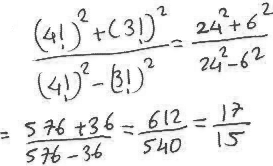 ((4!)² + (3!)²) / ((4!)² - (3!)²) = (24² + 6²) / (24² - 6²)
= (576 + 36) / (576 - 36) = 612 / 540 = 17 / 15